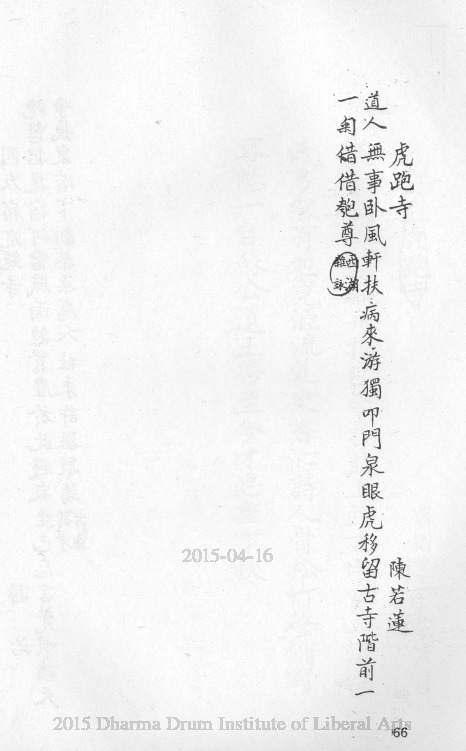 虎跑寺　陳若蓮
道人無事卧風軒扶病來游獨叩門泉眼虎移留古寺階前一
一匊借匏尊西湖雜詠
2015-04-16
2015 Dharma Drum Institute of Liberal Arts
66